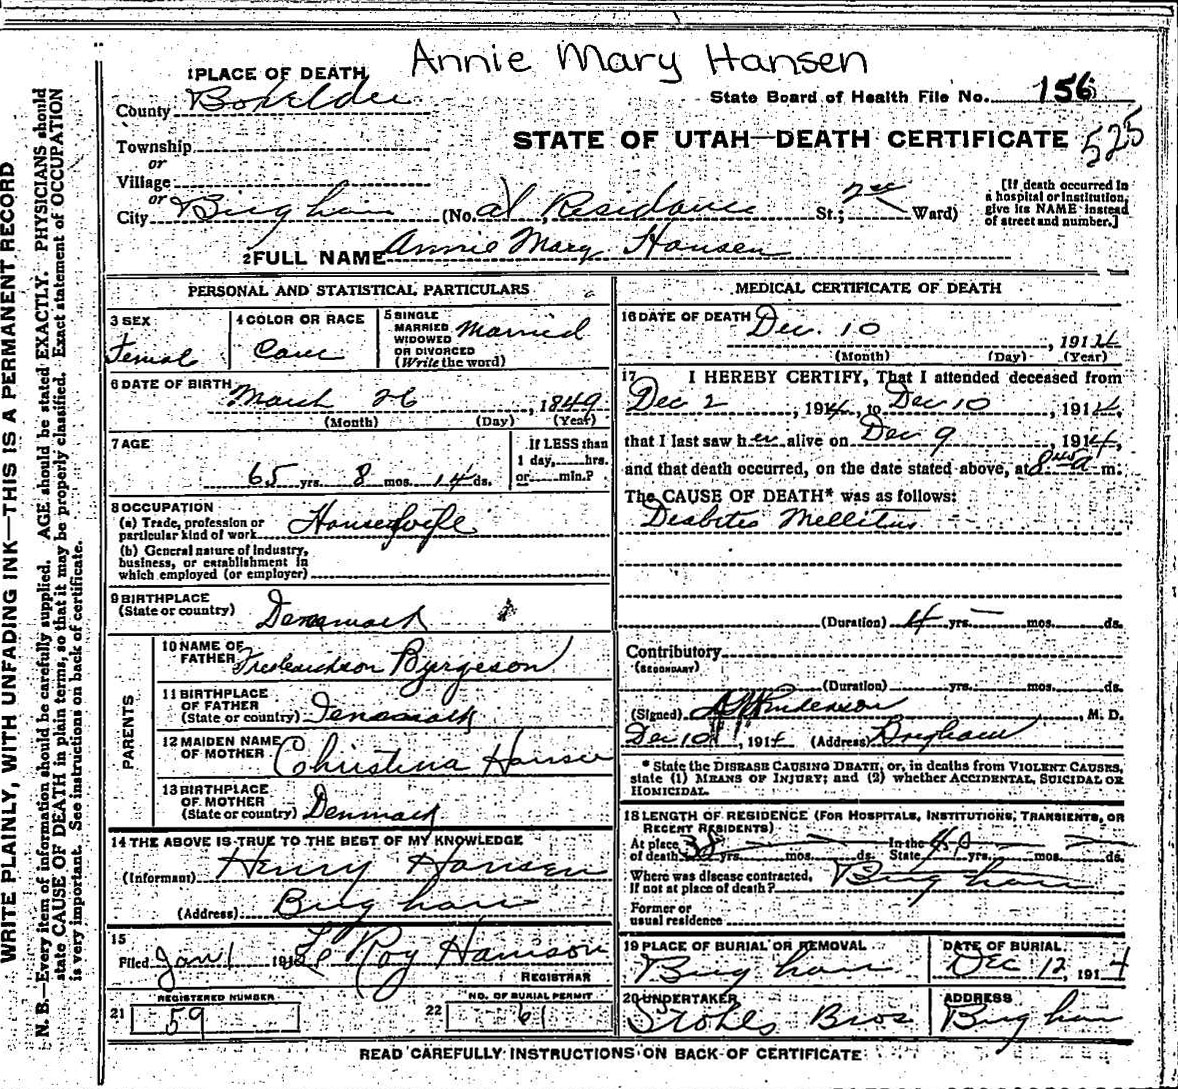 Annie Mary Hansen
1 PLACE OF DEATH
County Boxelder
State Board of Health File No. 156
STATE OF UTAH—DEATH CERTIFICATE 525
Township
or
Village
or
City Brigham (No. at Residence St.; 2nd Ward)
[If death occurred in
a hospital or institution,
give its NAME instead
of street and number.]
2 FULL NAME Annie Mary Hansen
PERSONAL AND STATISTICAL PARTICULARS
3 SEX
Female
4 COLOR OR RACE
5 SINGLE
MARRIED
WIDOWED
OR DIVORCED
(Write the word)
Married
6 DATE OF BIRTH
March 26, 1849
(Month) (Day) (Year)
7 AGE
65 yrs. 8 mos. 14 ds.
If LESS than
1 day, hrs.
or min.?
8 OCCUPATION
(a) Trade, profession or
particular kind of work Housewife
(b) General nature of industry,
business, or establishment in
which employed (or employer)
9 BIRTHPLACE
(State or country) Denamark
PARENTS
10 NAME OF
FATHER Byrgeson
11 BIRTHPLACE
OF FATHER
(State or country) Denamark
12 MAIDEN NAME
OF MOTHER Christina Hansen
13 BIRTHPLACE
OF MOTHER
(State or country) Denmark
14 THE ABOVE IS TRUE TO THE BEST OF MY KNOWLEDGE
(Informant) Henry Hansen
(Address) Brigham
15
Filed Jan 1 191 Le Roy Harrison
REGISTRAR
21 REGISTERED NUMBER
59
22 NO. OF BURIAL PERMIT
61
MEDICAL CERTIFICATE OF DEATH
16 DATE OF DEATH Dec. 10
, 1914
(Month) (Day) (Year)
17 I HEREBY CERTIFY, That I attended deceased from
Dec 2, 1914, to Dec 10, 1914,
that I last saw her alive on Dec 9, 1914,
and that death occurred, on the date stated above, at 8 a m.
The CAUSE OF DEATH* was as follows:
Diabetis Mellitus
(Duration) 4 yrs. mos. ds.
Contributory
(SECONDARY)
(Duration) yrs. mos. ds.
(Signed) , M. D.
Dec 10, 1914 (Address) Brigham
* State the DISEASE CAUSING DEATH, or, in deaths from VIOLENT CAUSES,
state (1) MEANS OF INJURY; and (2) whether ACCIDENTAL, SUICIDAL OR
HOMICIDAL.
18 LENGTH OF RESIDENCE (FOR HOSPITALS, INSTITUTIONS, TRANSIENTS, OR
RECENT RESIDENTS)
At place
of death yrs. mos. ds. In the
State 40 yrs. mos. ds.
Where was disease contracted,
if not at place of death? Brigham
Former or
usual residence
19 PLACE OF BURIAL OR REMOVAL
Brigham
DATE OF BURIAL
Dec 12, 1914
20 UNDERTAKER
Stohls Bros
ADDRESS
Brigham
READ CAREFULLY INSTRUCTIONS ON BACK OF CERTIFICATE
WRITE PLAINLY, WITH UNFADING INK—THIS IS A PERMANENT RECORD
N. B.—Every item of information should be carefully supplied. AGE should be stated EXACTLY. PHYSICIANS should
state CAUSE OF DEATH in plain terms, so that it may be properly classified. Exact statement of OCCUPATION
is very important. See instructions on back of certificate.